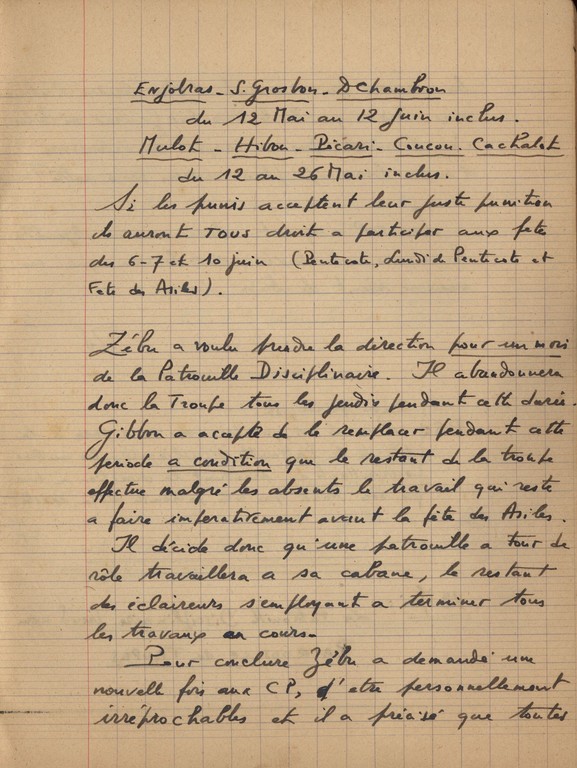 Enjolras - S. Grosbon - D Chambron
du 12 Mai au 12 Juin inclus.
Mulot - Hibou - Picari - Coucou - Cachalot
du 12 au 26 Mai inclus.
Si les punis acceptent leur juste punition
ils auront TOUS droit a participer aux fete
des 6-7 et 10 juin (Pentecote, Lundi de Pentecote et
Fete des Asiles).
Zébu a voulu prendre la direction pour un mois
de la Patrouille Disciplinaire. Il abandonnera
donc la Troupe tous les jeudis pendant cette durée.
Gibbon a accepté de le remplacer pendant cette
periode a condition que le restant de la troupe
effectue malgré les absents le travail qui reste
a faire imperativement avant la fête des Asiles.
Il décide donc qu'une patrouille a tour de
rôle travaillera a sa cabane, le restant
des éclaireurs s'employant a terminer tous
les travaux en cours.
Pour conclure Zébu a demandé une
nouvelle fois aux CP, d'etre personnellement
irréprochables et il a précisé que toutes